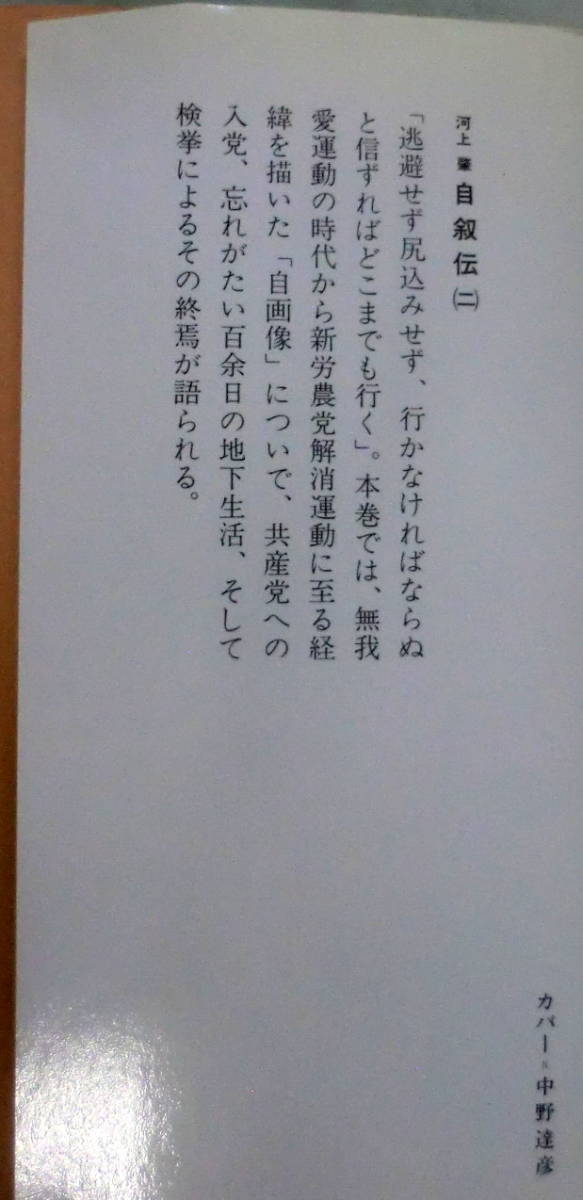 河上 肇 自叙伝㈡
「逃避せず尻込みせず、行かなければならぬ
と信ずればどこまでも行く」。本巻では、無我
愛運動の時代から新労農党解消運動に至る経
緯を描いた「自画像」についで、共産党への
入党、忘れがたい百余日の地下生活、そして
検挙によるその終焉が語られる。
カバー=中野達彦